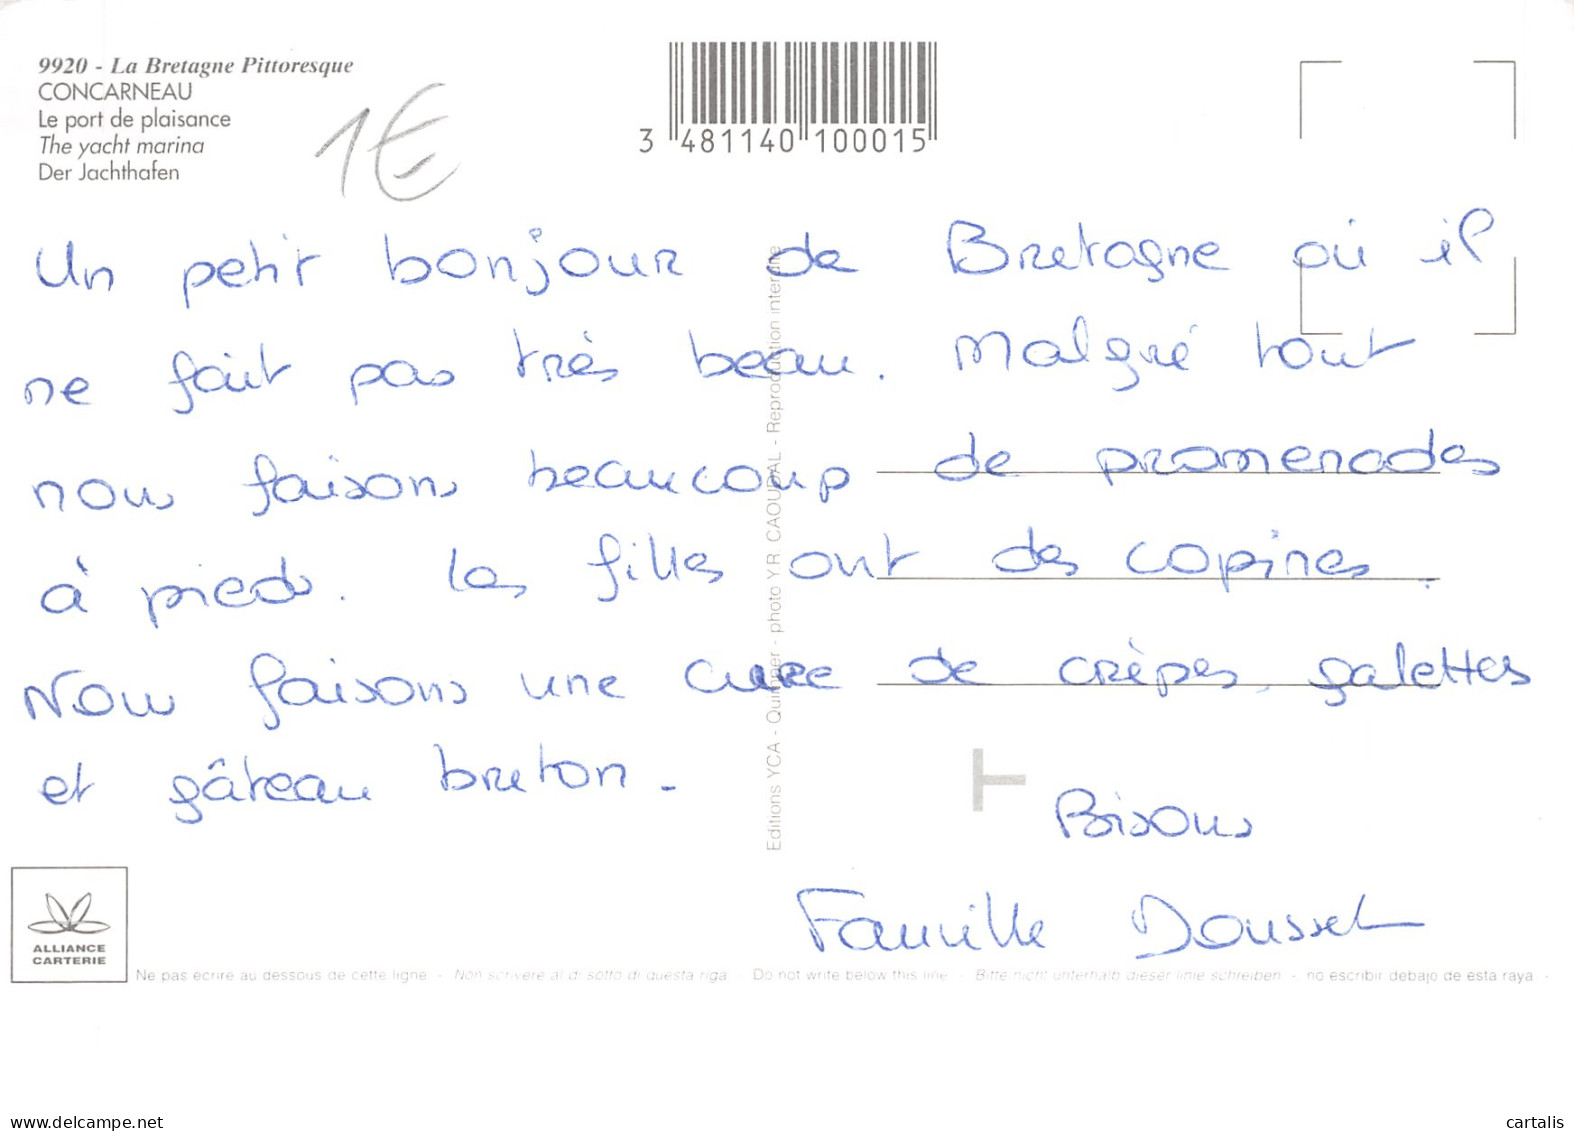 9920 - La Bretagne Pittoresque
CONCARNEAU
Le port de plaisance
The yacht marina
Der Jachthafen
1€
3 481140 100015
Un petit bonjour de Bretagne où il
ne fait pas très beau. Malgré tout
nous faisons beaucoup de promenades
à pieds. Les filles ont des copines.
Nous faisons une cure de crèpes, galettes
et gâteau breton.
Bisous
Famille Dousset
Editions YCA - Quimper - photo Y.R. CAOUDAL - Reproduction interdite
ALLIANCE
CARTERIE
Ne pas écrire au dessous de cette ligne - Non scrivere al di sotto di questa riga - Do not write below this line - Bitte nicht unterhalb dieser linie schreiben - no escribir debajo de esta raya -
www.delcampe.net
cartalis